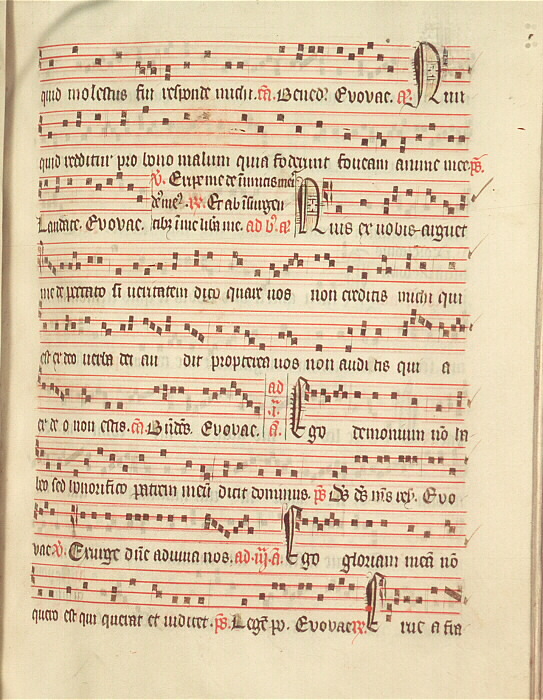 quid molestus fui responde michi. cā. Bened̄. Evovae. a. Num
quid redditur pro bono malum quia foderunt foveam anime mee. ps.
v. Eripe me de inimicis meis
de me. Et ab insurgen
Laudate. Evovae. tibus in me libera me. ad b. a. Quis ex vobis arguet
me de peccato si veritatem dico quare vos non creditis michi qui
est ex deo verba dei audit propterea vos non auditis qui a
ex deo non estis. cā. Bn̄dc̄s. Evovae. ad i. a. Ego demonium nō ha
beo sed honorifico patrem meū dicit dominus. ps Ds ds ms res. Evo
vae v. Exurge dn̄e adiuva nos. ad iij. a. Ego gloriam meā nō
quero est qui querat et iudicet. ps. Legē po. Evovae Erue a fra